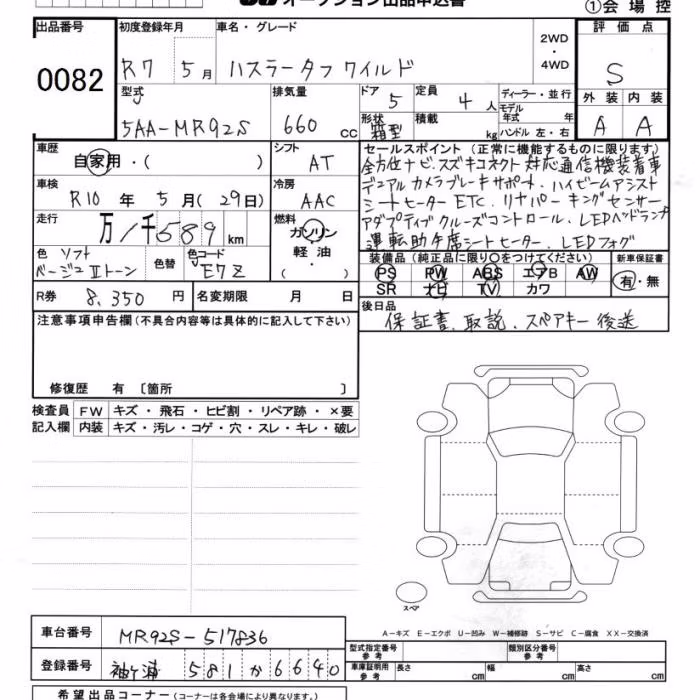 オークション出品申込書
①会場控
出品番号
0082
初度登録年月
R7 5月
車名・グレード
ハスラータフワイルド
2WD・4WD
評価点
S
外装 内装
A A
型式
5AA-MR92S
排気量
660 cc
ドア
5
定員
4人
形状
箱型
積載
kg
ディーラー・並行
モデル年式 年
ハンドル 左・右
車歴
自家用・( )
シフト
AT
車検
R10年 5月(29日)
冷房
AAC
走行
万/千589 km
燃料
ガソリン
軽油
・( )
色 ソフトベージュⅡトーン
色替
色コード
E7Z
R券 8,350円
名変期限 月 日
セールスポイント(正常に機能するものに限ります)
全方位ナビ.スズキコネクト対応通信機装着車
デュアルカメラブレーキサポート.ハイビームアシスト
シートヒーター ETC.リヤパーキングセンサー
アダプティブクルーズコントロール.LEDヘッドランプ
運転助手席シートヒーター.LEDフォグ
装備品(純正品に限り○をつけてください)
PS PW ABS エアB AW
SR ナビ TV カワ
新車保証書
有・無
後日品
保証書.取説.スペアキー後送
注意事項申告欄(不具合内容等は具体的に記入して下さい)
修復歴 有〔箇所 〕
検査員記入欄
FW キズ・飛石・ヒビ割・リペア跡・×要
内装 キズ・汚レ・コゲ・穴・スレ・キレ・破レ
スペア
A-キズ E-エクボ U-凹み W-補修跡 S-サビ C-腐食 XX-交換済
車台番号 MR92S-517836
登録番号 袖ヶ浦 581か6640
型式指定番号 参考
類別区分番号 参考
車庫証明用 参考 長さ cm 幅 cm 高さ cm
希望出品コーナー(コーナーは各会場により異なります。)